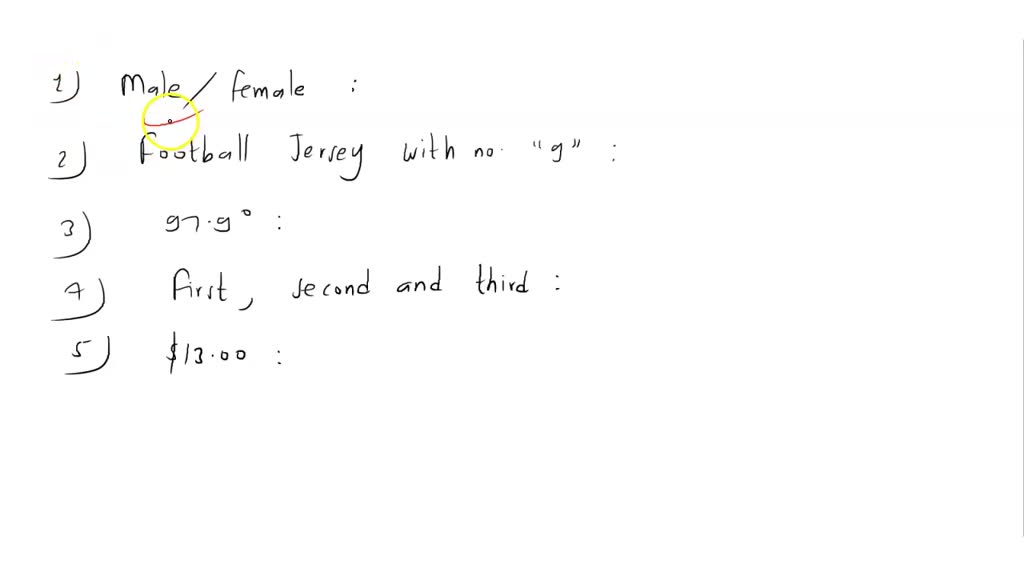 1) Male / female :
2) Football Jersey with no. "9" :
3) 97.9° :
4) First, second and third :
5) $13.00 :